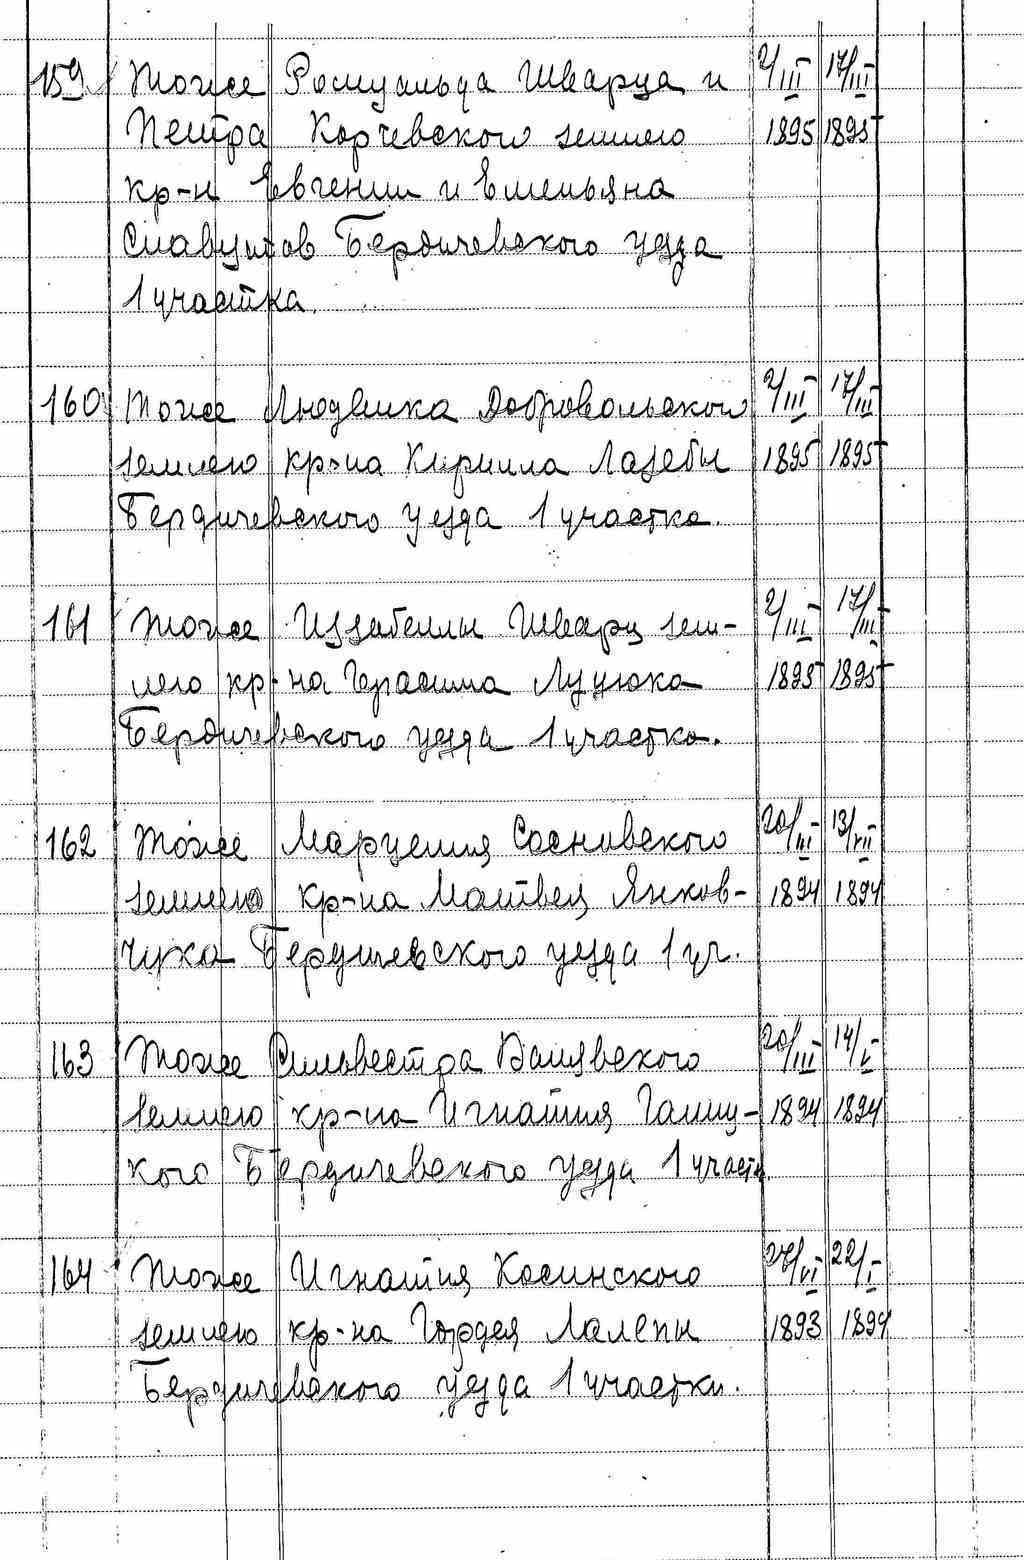 159 Тоже Ромуальда Шварца и 2/III 17/III
Петра Корчевского землею 1895 1895
кр-н Евгении и Емельяна
Славутов Бердичевского уезда
1 участка.
160 Тоже Людвика Добровольского 2/III 17/III
землею кр-на Кирилла Лазебы 1895 1895
Бердичевского уезда 1 участка.
161 Тоже Иззабеллы Шварц зем- 2/III 17/III
лею кр-на Герасима Луцюка 1895 1895
Бердичевского уезда 1 участка.
162 Тоже Марцелия Сосновского 20/III 13/VII
землею кр-на Матвея Янков- 1894 1894
чука Бердичевского уезда 1 уч.
163 Тоже Сильвестра 20/III 14/V
землею кр-на Игнатия 1894 1894
кого Бердичевского уезда 1 участк
164 Тоже Игнатия Косинского 27/VI 22/I
землею кр-на Гордея Лалепы 1893 1894
Бердичевского уезда 1 участки.